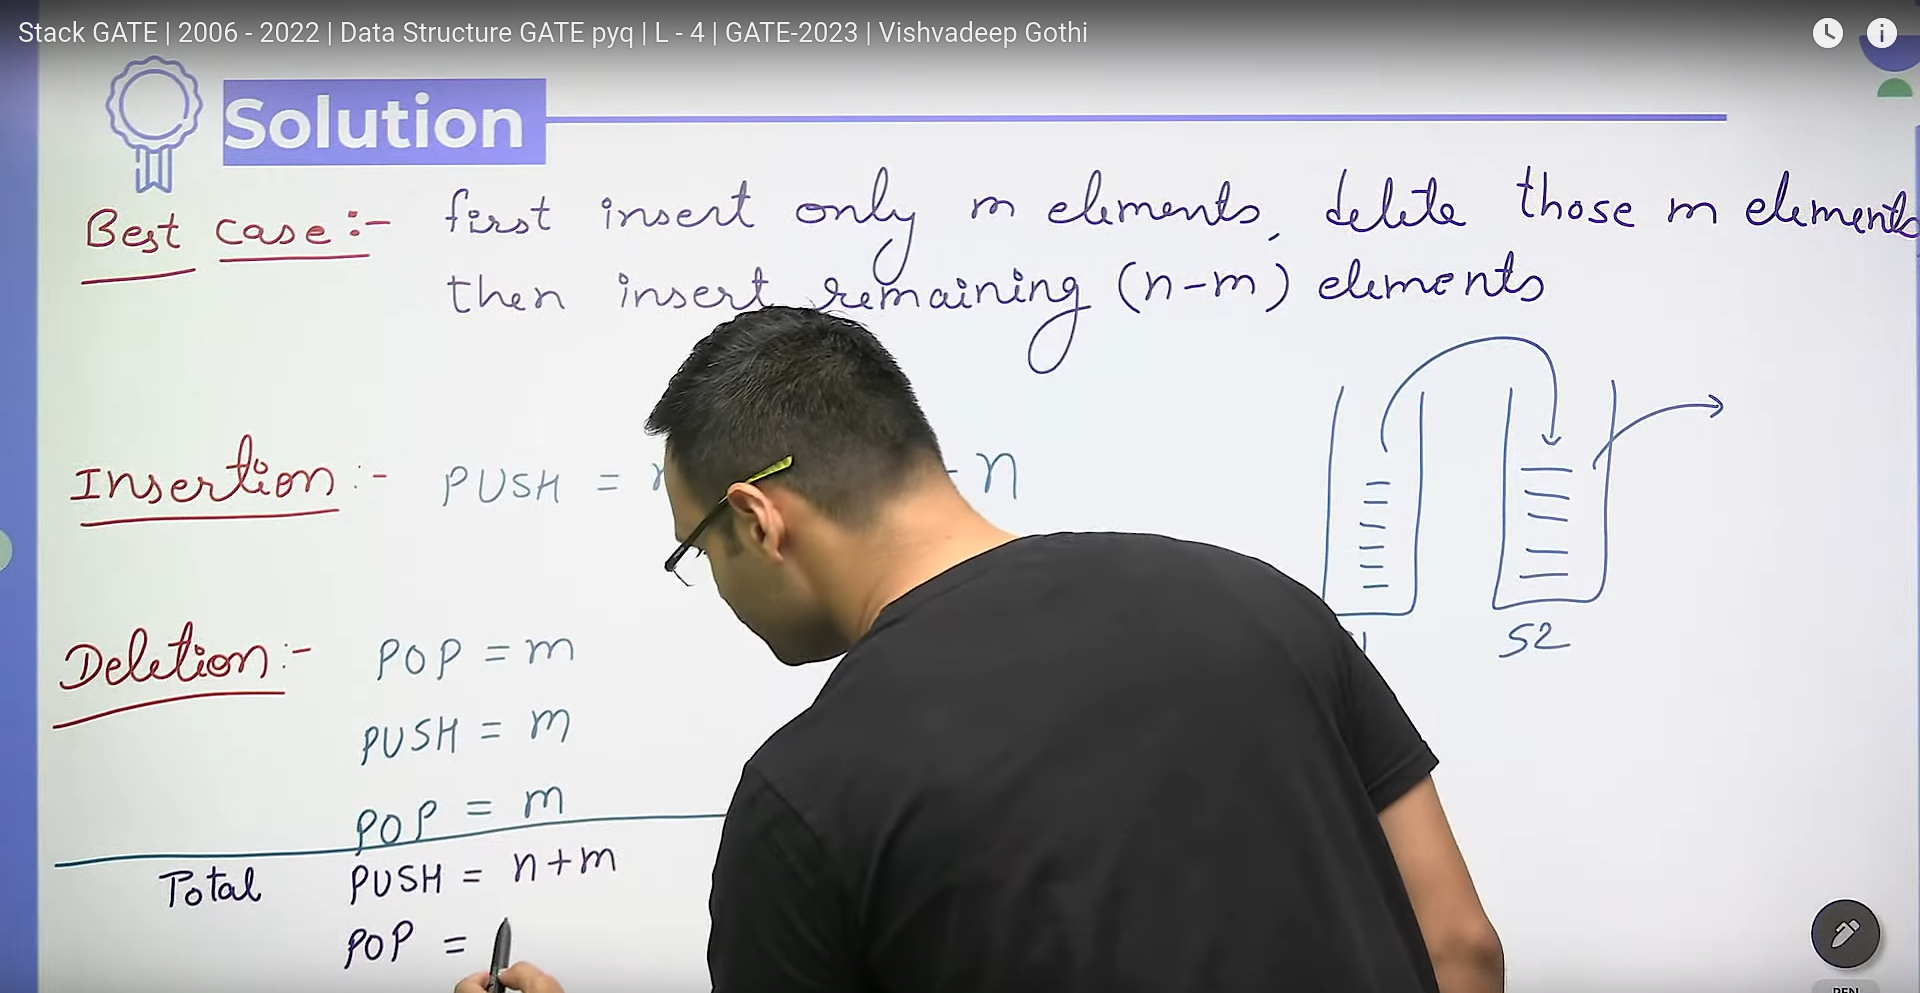 Stack GATE | 2006 - 2022 | Data Structure GATE pyq | L - 4 | GATE-2023 | Vishvadeep Gothi
Solution
Best case:- first insert only m elements, delete those m elements
then insert remaining (n-m) elements
Insertion:- PUSH = n
Deletion:- POP = m
PUSH = m
POP = m
S2
Total PUSH = n+m
POP =